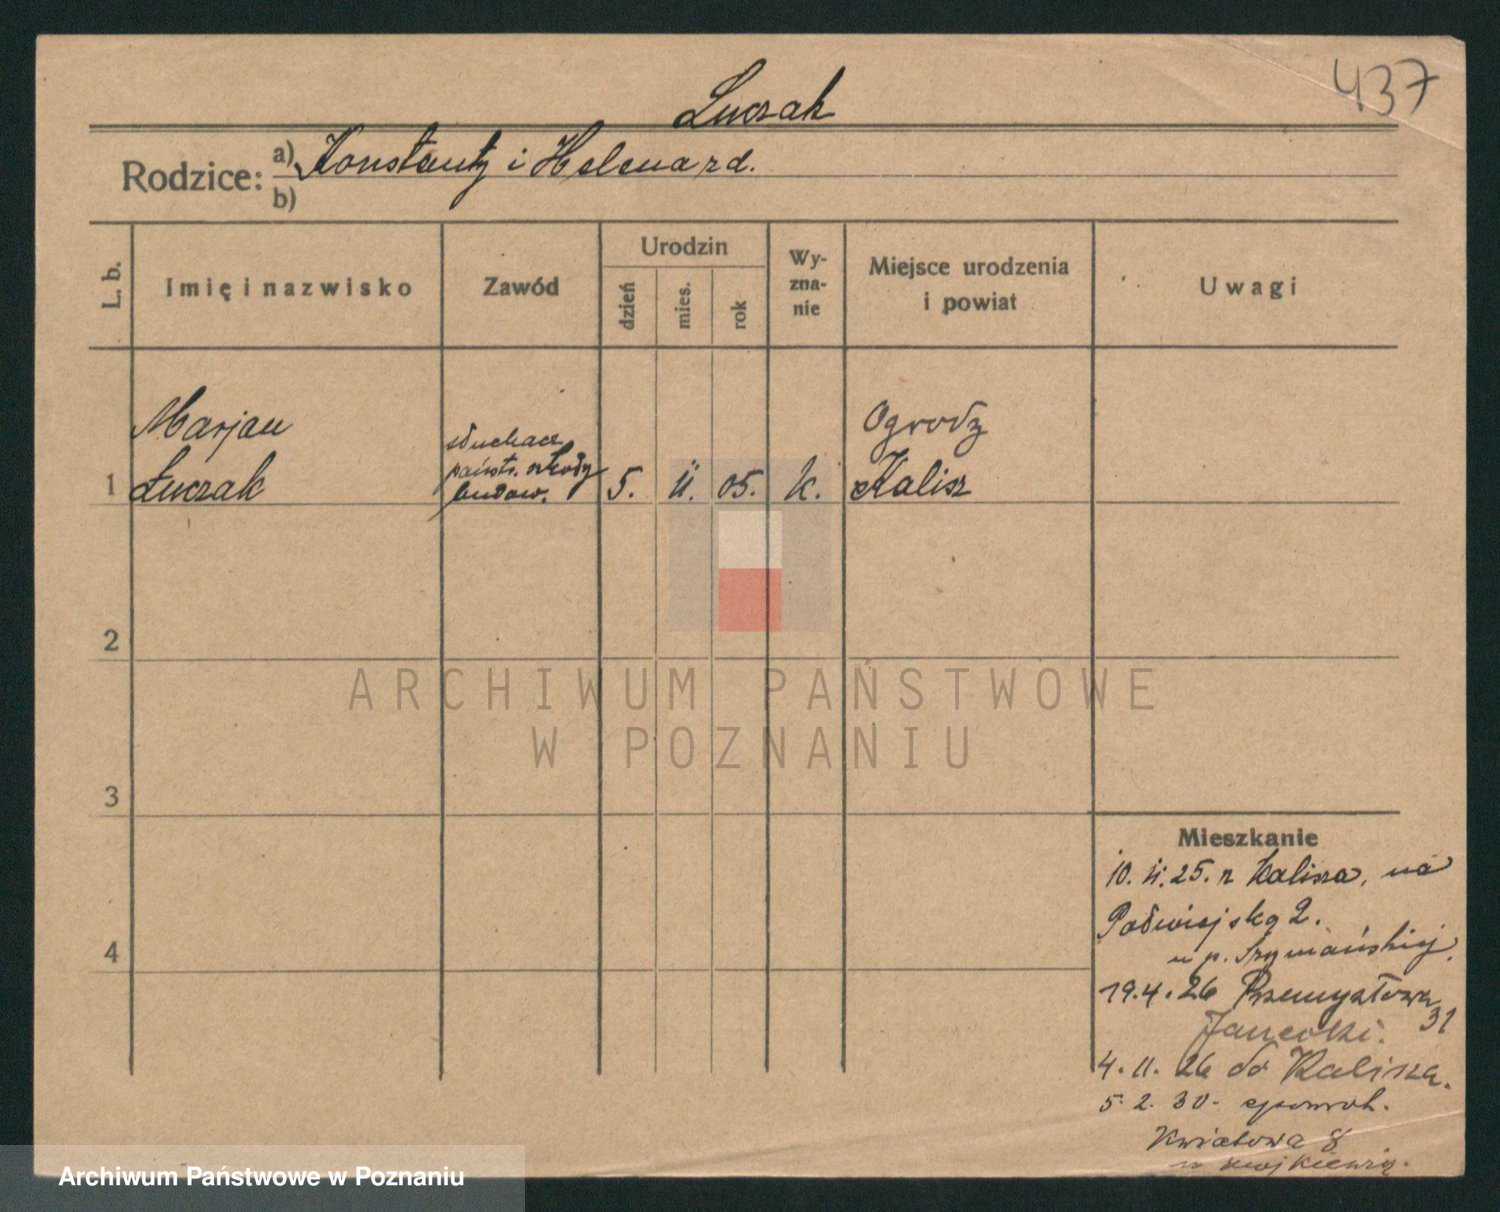 437
Łuczak
Rodzice: a) Konstanty i Helena z d.
b)
L. b.
Imię i nazwisko
Zawód
Urodzin
dzień
mies.
rok
Wy-
zna-
nie
Miejsce urodzenia
i powiat
Uwagi
Marjan
Łuczak
słuchacz
państw. szkoły
budow.
5. 11. 05. k.
Ogrody
Kalisz
1
2
3
4
ARCHIWUM PAŃSTWOWE
W POZNANIU
Mieszkanie
10. 11. 25. z Kalisza, na
2.
u p. Szymańskiej.
19.4.26 Przemysłowa
31
4. 11. 26 do Kalisza.
5. 2. 30.
Kwiatowa 8
Archiwum Państwowe w Poznaniu